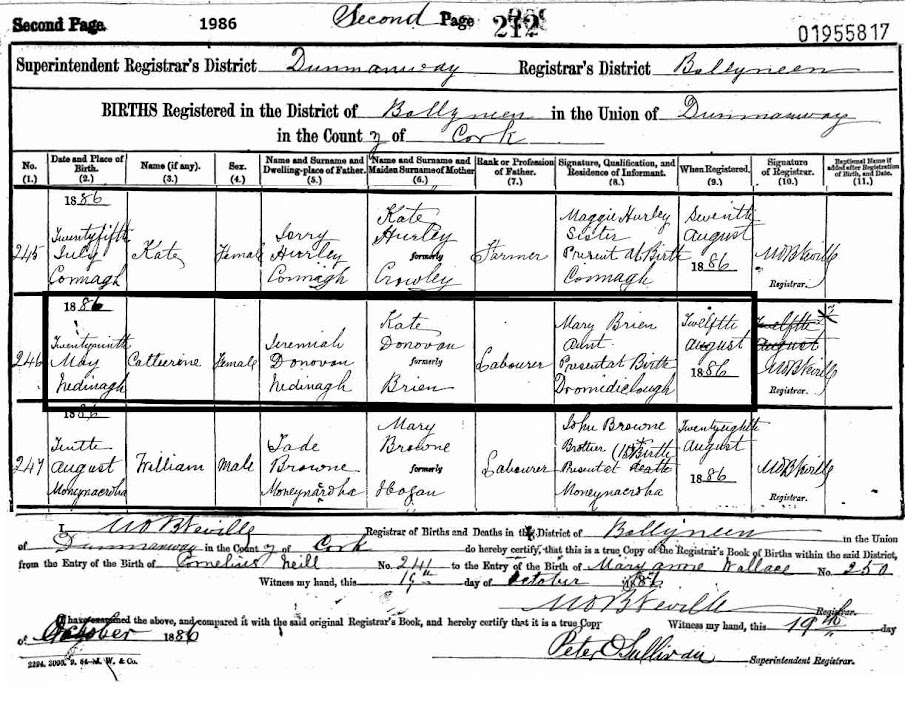 Second Page. 1986 Second Page 212 01955817
Superintendent Registrar's District Dunmanway Registrar's District Ballyneen
BIRTHS Registered in the District of Ballyneen in the Union of Dunmanway
in the County of Cork
No. (1.) Date and Place of Birth. (2.) Name (if any). (3.) Sex. (4.) Name and Surname and Dwelling-place of Father. (5.) Name and Surname and Maiden Surname of Mother (6.) Rank or Profession of Father. (7.) Signature, Qualification, and Residence of Informant. (8.) When Registered. (9.) Signature of Registrar. (10.) Baptismal Name if added after Registration of Birth, and Date. (11.)
1886
245 Twentyfifth July Connagh Kate Female Jerry Hurley Connagh Kate Hurley formerly Crowley Farmer Maggie Hurley Sister Present at Birth Connagh Seventh August 1886 Registrar.
1886
246 Twentyninth May Nedinagh Catherine Female Jeremiah Donovan Nedinagh Kate Donovan formerly Brien Labourer Mary Brien Aunt Present at Birth Dromediclough Twelfth August 1886 Twelfth August Registrar.
1886
247 Tenth August Moneynacroha William Male Jade Browne Mary Browne formerly Hogan Labourer John Browne Brother Birth Present at death Moneynacroha Twentyeighth August 1886 Registrar.
Registrar of Births and Deaths in the District of Ballyneen in the Union
of Dunmanway in the County of Cork do hereby certify, that this is a true Copy of the Registrar's Book of Births within the said District,
from the Entry of the Birth of Cornelius Neill No. 241 to the Entry of the Birth of Mary Anne Wallace No. 250
Witness my hand, this 19th day of October 1886
Registrar.
I have examined the above, and compared it with the said original Registrar's Book, and hereby certify that it is a true Copy Witness my hand, this 19th day
of October 1886
Peter O'Sullivan Superintendent Registrar.